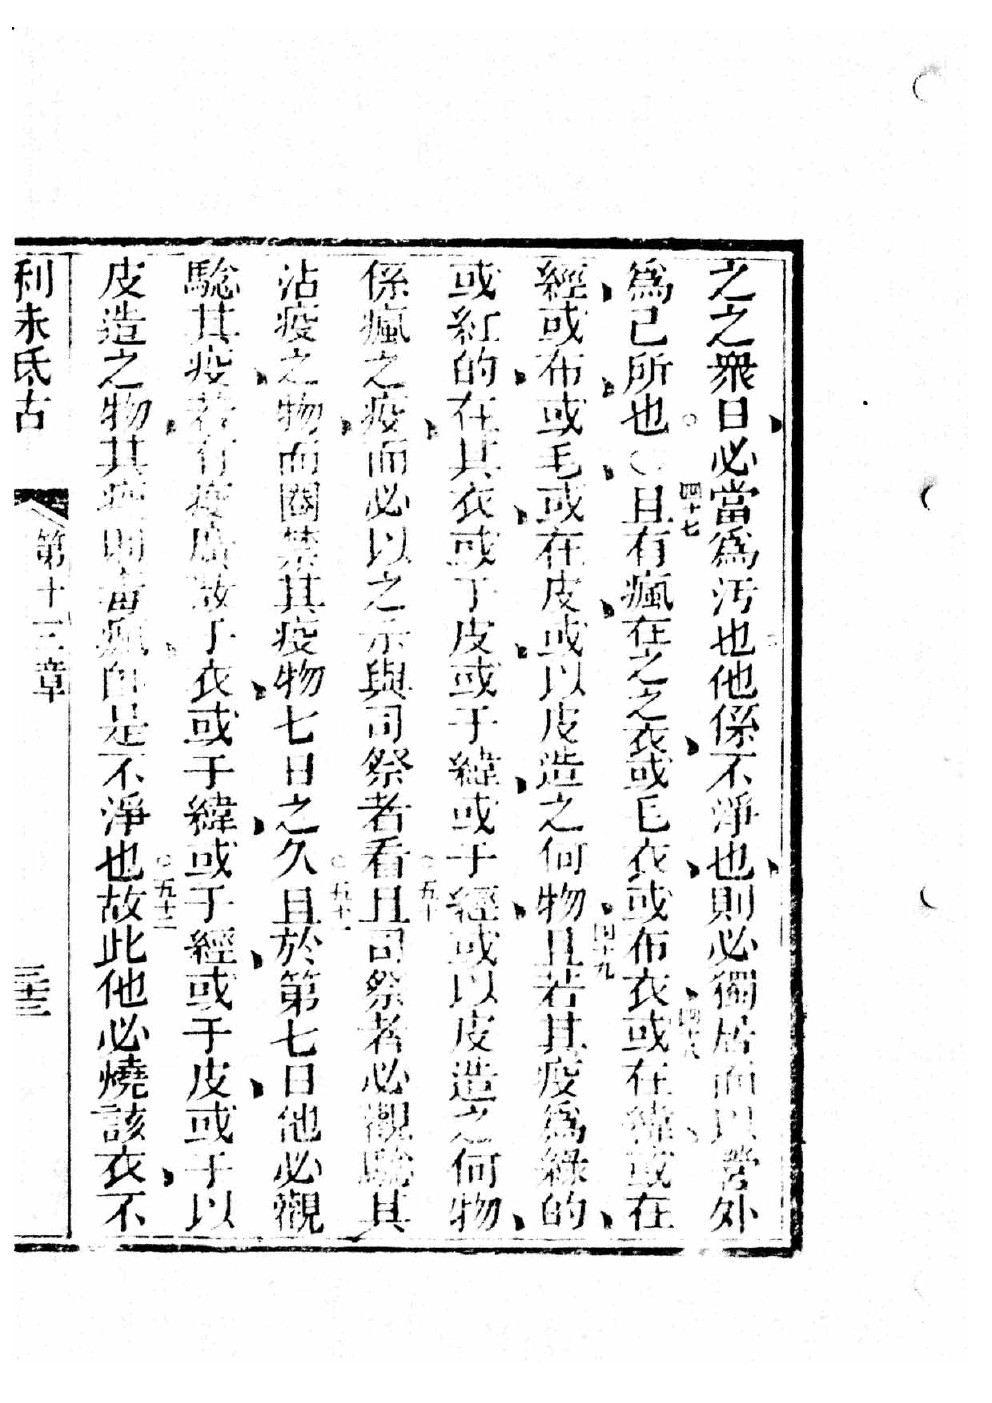 之之衆日必當爲汚也他係不淨也則必獨居而以營外
爲己所也○四十七且有瘋在之之衣或毛衣或布衣或四十八在緯或在
經或布或毛或在皮或以皮造之何物四十九且若其疫爲綠的
或紅的在其衣或于皮或于緯或于經或以皮造之何物
係瘋之疫而必以之示與司祭者看五十且司祭者必觀騐其
沾疫之物而關禁其疫物七日之久五十一且於第七日他必觀
騐其疫若有疫廣散于衣或于緯或于經或于皮或于以
皮造之物其疫則害瘋自是不淨也五十二故此他必燒該衣不
利未氏古
第十三章
三十三